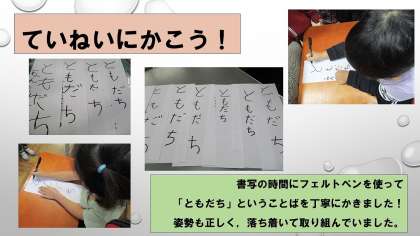 ていねいにかこう！
ともだち
ともだち
ともだち
ともだち
ともだち
ともだち
ともだち
ともだち
ともだち
書写の時間にフェルトペンを使って
「ともだち」ということばを丁寧にかきました！
姿勢も正しく，落ち着いて取り組んでいました。